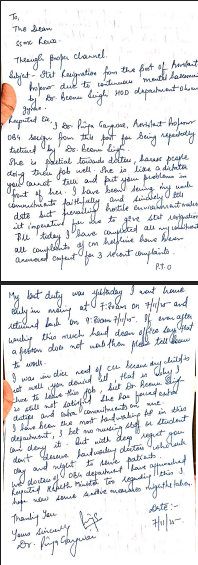 To,
The Dean
SSMC Rewa
Through proper channel.
Subject - Resignation from the post of Assistant
Professor due to continuous mental harassment
by Dr. Beenu Singh HOD department
Respected Sir,
I Dr. Priya Assistant Professor
OBG resign from this post for being repeatedly
tortured by Dr. Beenu Singh.
She is partial towards duties, harass people
doing their job well. She is like a dictator
you cannot tell and put your problems in
front of her. I have been doing my work
commitments faithfully and sincerely till
date but prevailing hostile environment makes
it imperative for me to give resignation
Till today I have completed all my
all complaints of cm helpline have been
answered except for 3 recent complaints.
P.T.O
My last duty was yesterday I went home
early in morning at 7:30am on 7/11/25 and
returned back on 9:30am 7/11/25. If even after
working this much hard dean office say that
a person does not work then please tell
to work.
I was in dire need of CCL because my child is
not well you denied it, that is why I
have to leave this job, but Dr. Beenu Singh
is still not satisfied she has forced extra
duties and labor commitments on me.
I have been the most hardworking in this
department, I bet no nursing staff or student
can deny it. But with deep regret you
don't deserve hardworking doctors who work
day and night to serve patients.
doctors of OBG department have approached
Respected Health Minister too regarding this I
hope now some action
Thanking You
Yours sincerely
Dr. Priya
Date :-
7/11/25